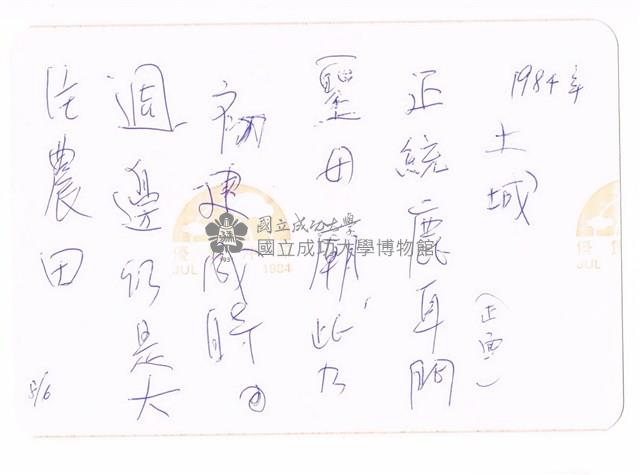 1984年
土城
(正面)
正統鹿耳門
聖母廟此乃
初建成時
週邊仍是大
片農田
5/6
國立成功大學
國立成功大學博物館
JUL 1984
JUL